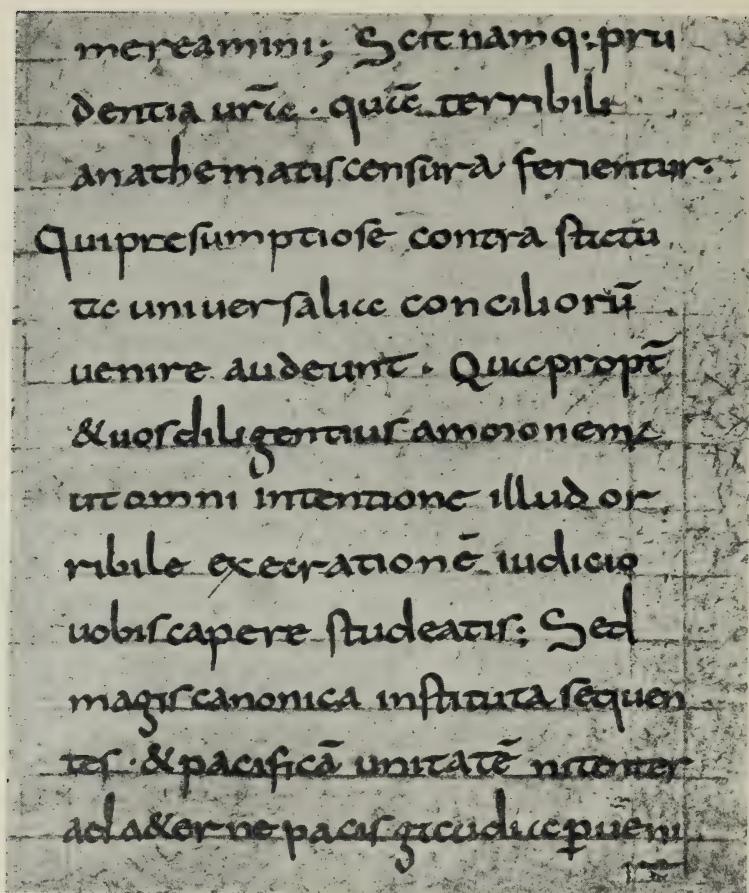 mereamini; Scit namq; pru
dentia ur̄a · quia terribili
anathematis censura ferientur.
Qui presumptiose contra statu
ta uniuersalia conciliorū
uenire audeunt. Quapropt̄
& uos diligentius
ut omni intentione illud or
ribile execrationē iudicio
uobis capere studeatis; Sed
magis canonica instituta sequen
tes · & pacificā unitatē nitenter
ad a&erne pacis gaudia p̱ueni